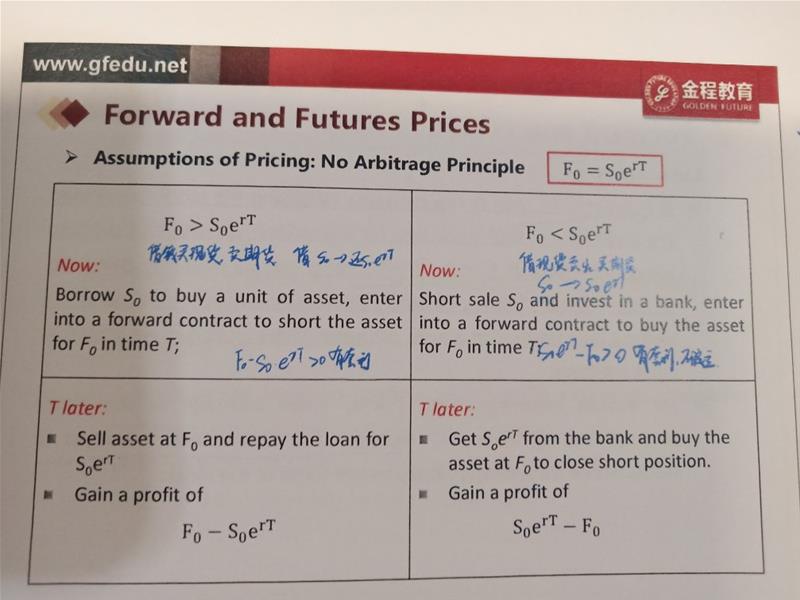 www.gfedu.net
金程教育
GOLDEN FUTURE
Forward and Futures Prices
➢ Assumptions of Pricing: No Arbitrage Principle
F₀ = S₀eʳᵀ
F₀ > S₀eʳᵀ
借钱买现货,卖期货 借 S₀→还S₀eʳᵀ
Now:
Borrow S₀ to buy a unit of asset, enter
into a forward contract to short the asset
for F₀ in time T;
F₀-S₀eʳᵀ>0 有套利
F₀ < S₀eʳᵀ
借现货卖出 买期货
S₀ → S₀eʳᵀ
Now:
Short sale S₀ and invest in a bank, enter
into a forward contract to buy the asset
for F₀ in time T;
S₀eʳᵀ-F₀>0 有套利
T later:
■ Sell asset at F₀ and repay the loan for
S₀eʳᵀ
■ Gain a profit of
F₀ − S₀eʳᵀ
T later:
■ Get S₀eʳᵀ from the bank and buy the
asset at F₀ to close short position.
■ Gain a profit of
S₀eʳᵀ − F₀